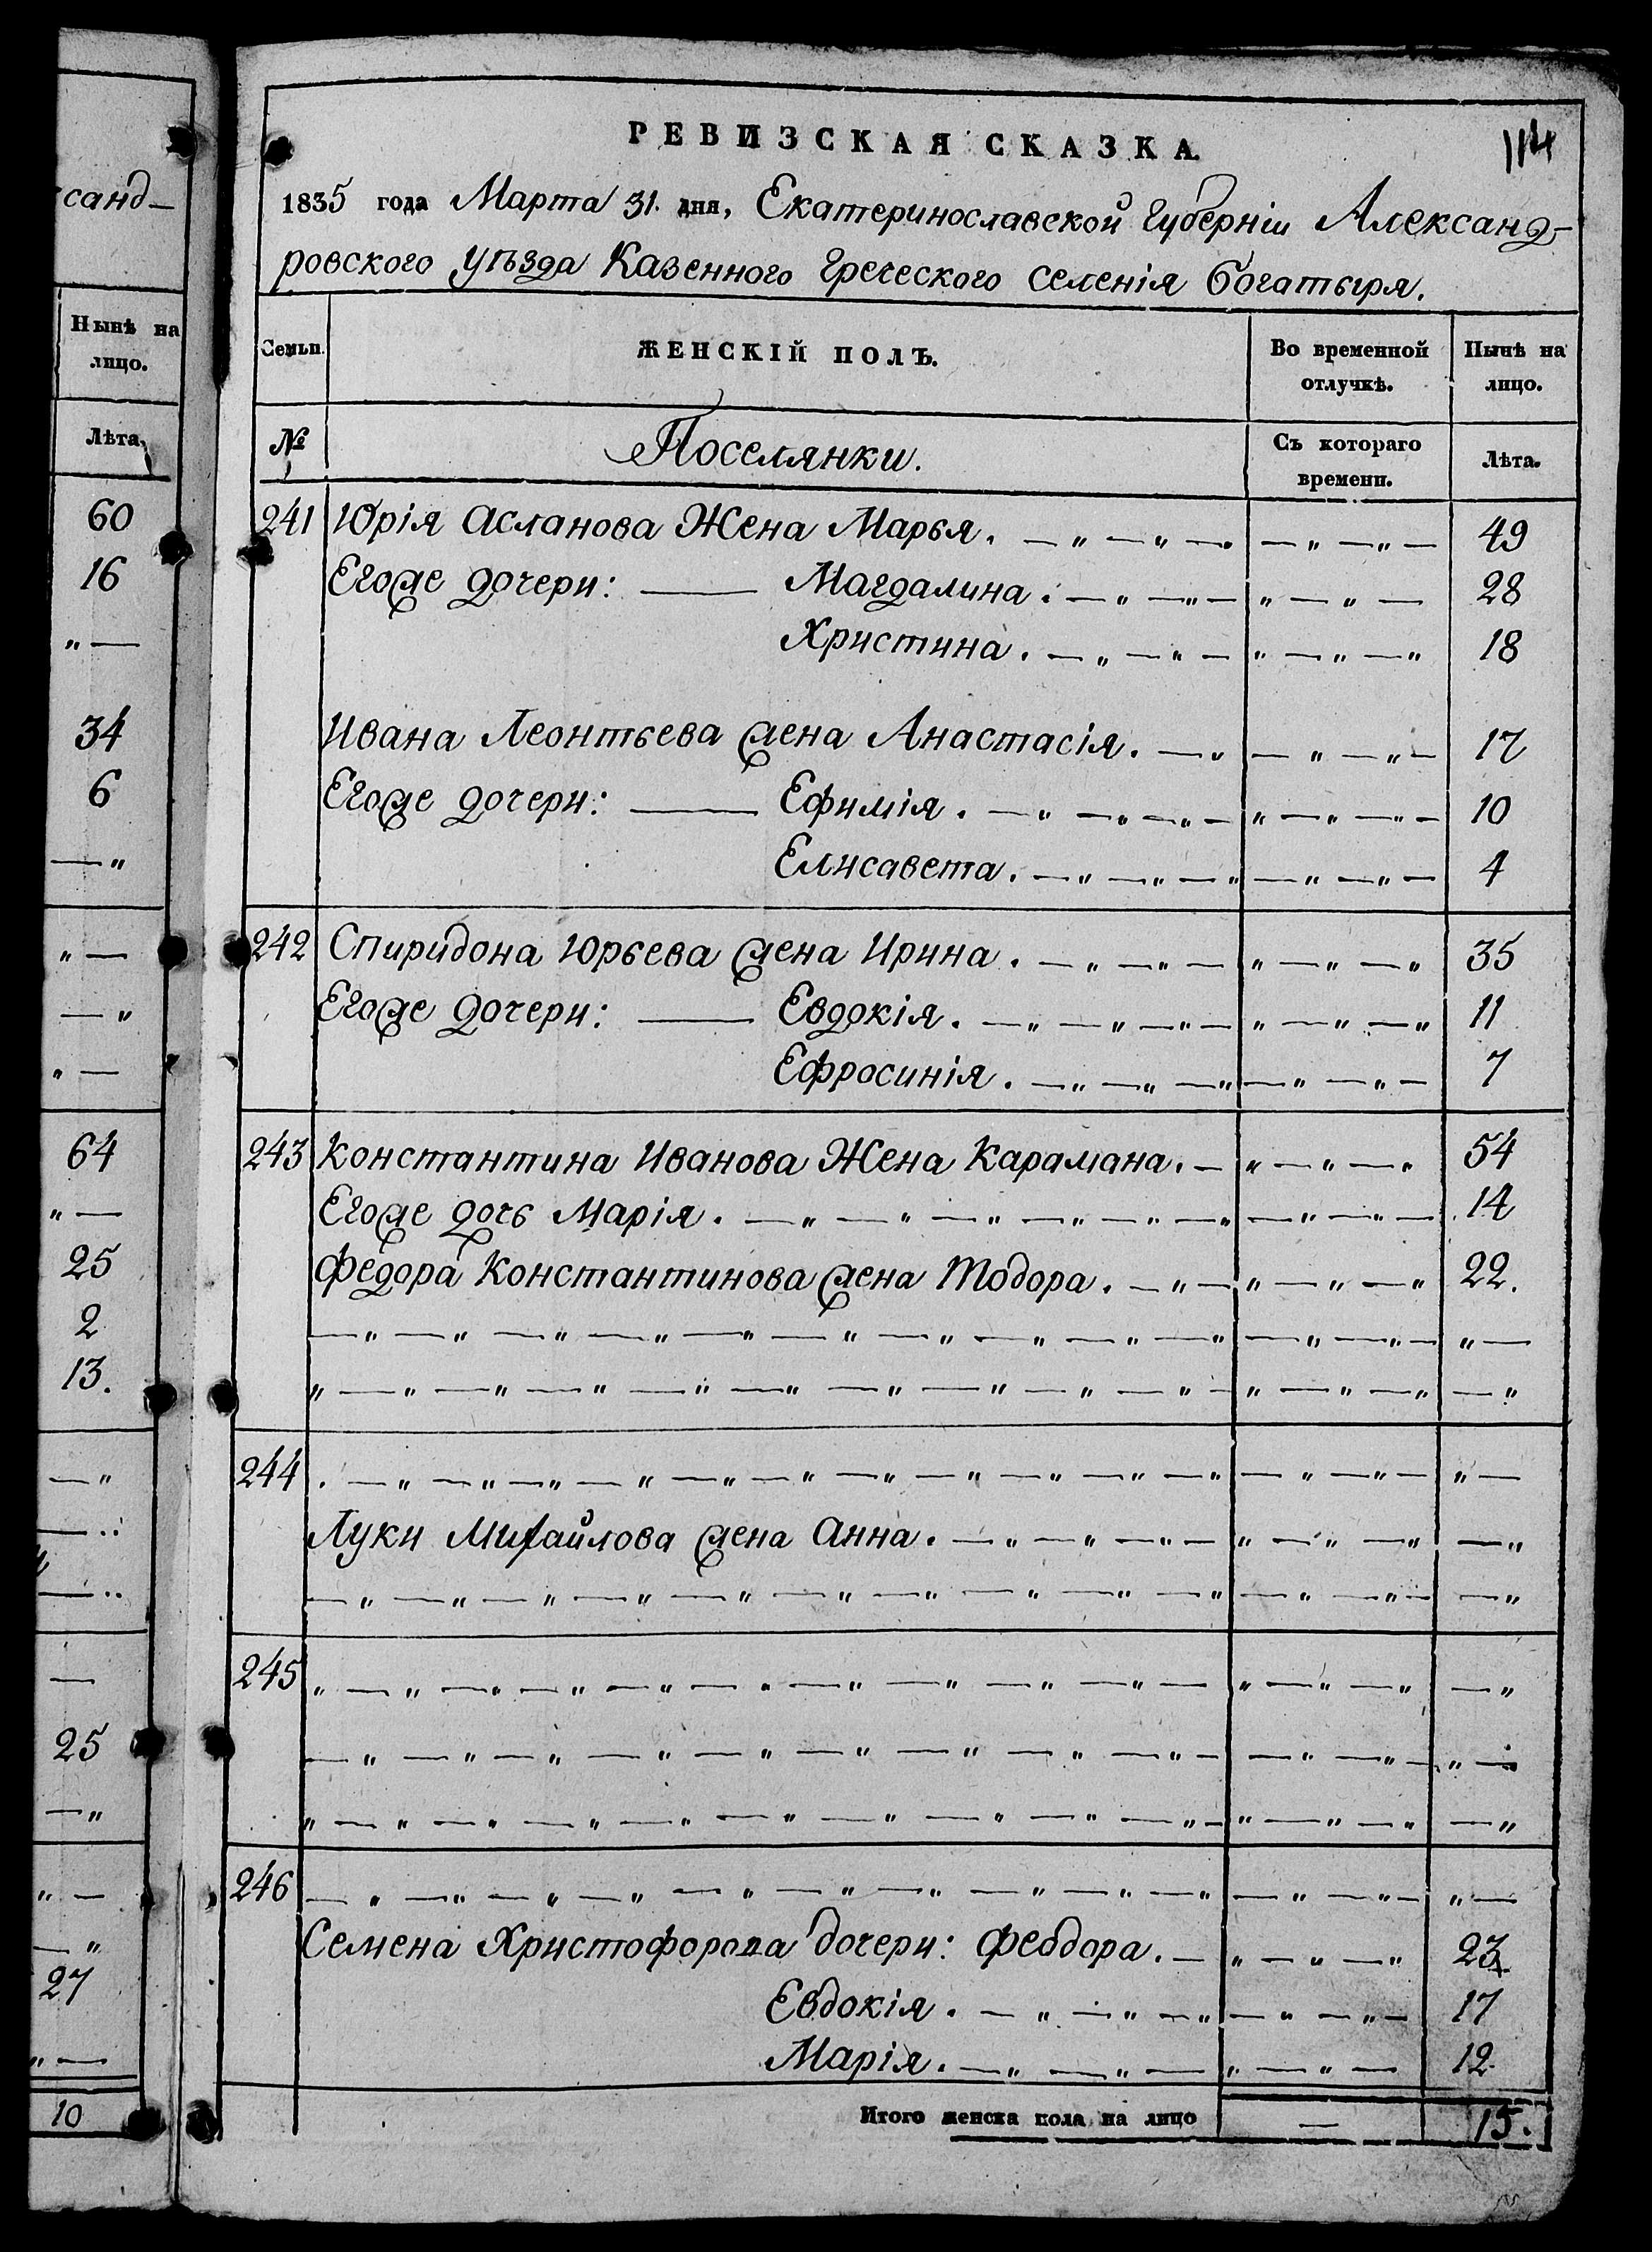 санд-
Нынѣ на
лицо.
Лѣта.
60
16
" —
34
6
— "
" —
— "
" —
64
" —
25
2
13.
— "
— "
— "
—
25
— "
" —
— "
27
" —
10
РЕВИЗСКАЯ СКАЗКА.
114
1835 года Марта 31. дня, Екатеринославской Губерніи Александ-
ровского Уѣзда Казенного Греческого селенія Богатыря.
Семьи. ЖЕНСКІЙ ПОЛЪ. Во временной отлучкѣ. Нынѣ на лицо.
№ Поселянки. Съ котораго времени. Лѣта.
241 Юрія Асланова Жена Марья. — " — " — — " — " — 49
Егоже дочери: — Магдалина. — " — " — " — " — 28
Христина. — " — " — " — " — " 18
Ивана Леонтьева жена Анастасія. — " — " — " — 17
Егоже дочери: — Ефимія. — " — " — " — " — " — " — 10
Елисавета. — " — " — " — " — " — 4
242 Спиридона Юрьева жена Ирина. — " — " — " — " — " 35
Егоже дочери: — Евдокія. — " — " — " — " — " — " 11
Ефросинія. — " — " — " — " — " — 7
243 Константина Иванова Жена Карамана. — " — " — " 54
Егоже дочь Марія. — " — " — " — " — " — " — " — " — 14
Федора Константинова жена Тодора. — " — " — " — " 22.
— " — " — " — " — " — " — " — " — " — " — " — " — " —
" — " — " — " — " — " — " — " — " — " — " — " — " — "
244 . — " — " — " — " — " — " — " — " — " — " — " — " — " —
Луки Михайлова жена Анна. — " — " — " — " — " — " — "
— " — " — " — " — " — " — " — " — " — " — " — " — — "
245 " — " — " — " — " — " — " — " — " — " — " — " — " — "
— " — " — " — " — " — " — " — " — " — — " — " — " —
" — " — " — " — " — " — " — " — " — " — " — " — " — "
246 — " — " — " — " — " — " — " — " — " — " — " — " — " —
Семена Христофорова дочери: Феодора. — " — " — " 23
Евдокія. — " — " — " — " — " — 17
Марія. — " — " — " — " — 12
Итого женска пола на лицо — 15.